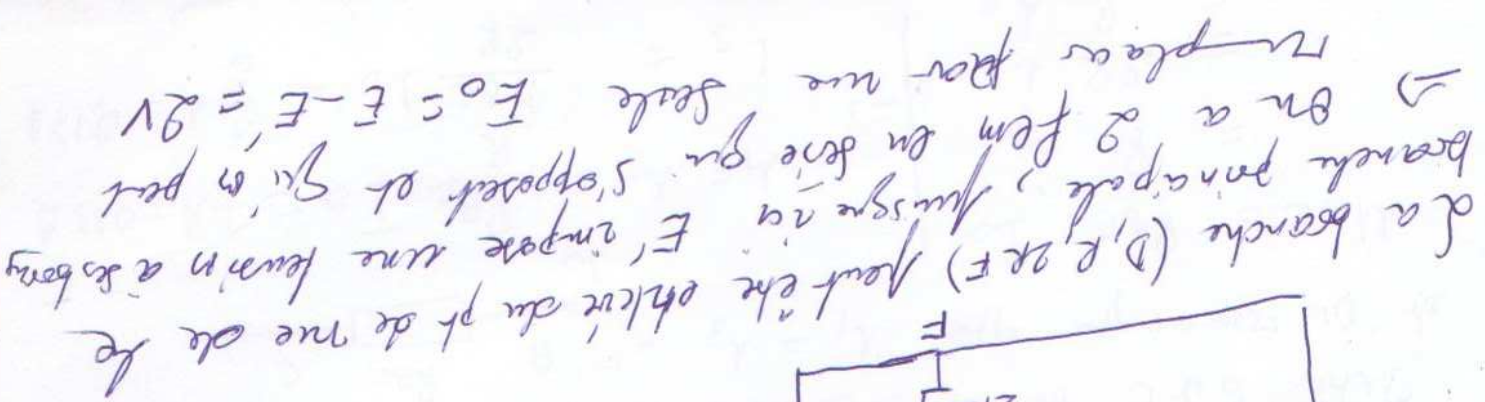 2R
F
La branche (D, R, 2R F) peut être enlevé du pt de vue de la
branche principale, puisque ici E' impose une tension à ses bornes
⇒ On a 2 fem en série qui s'opposent et qu'on peut
remplacer par une seule E₀ = E - E' = 2V